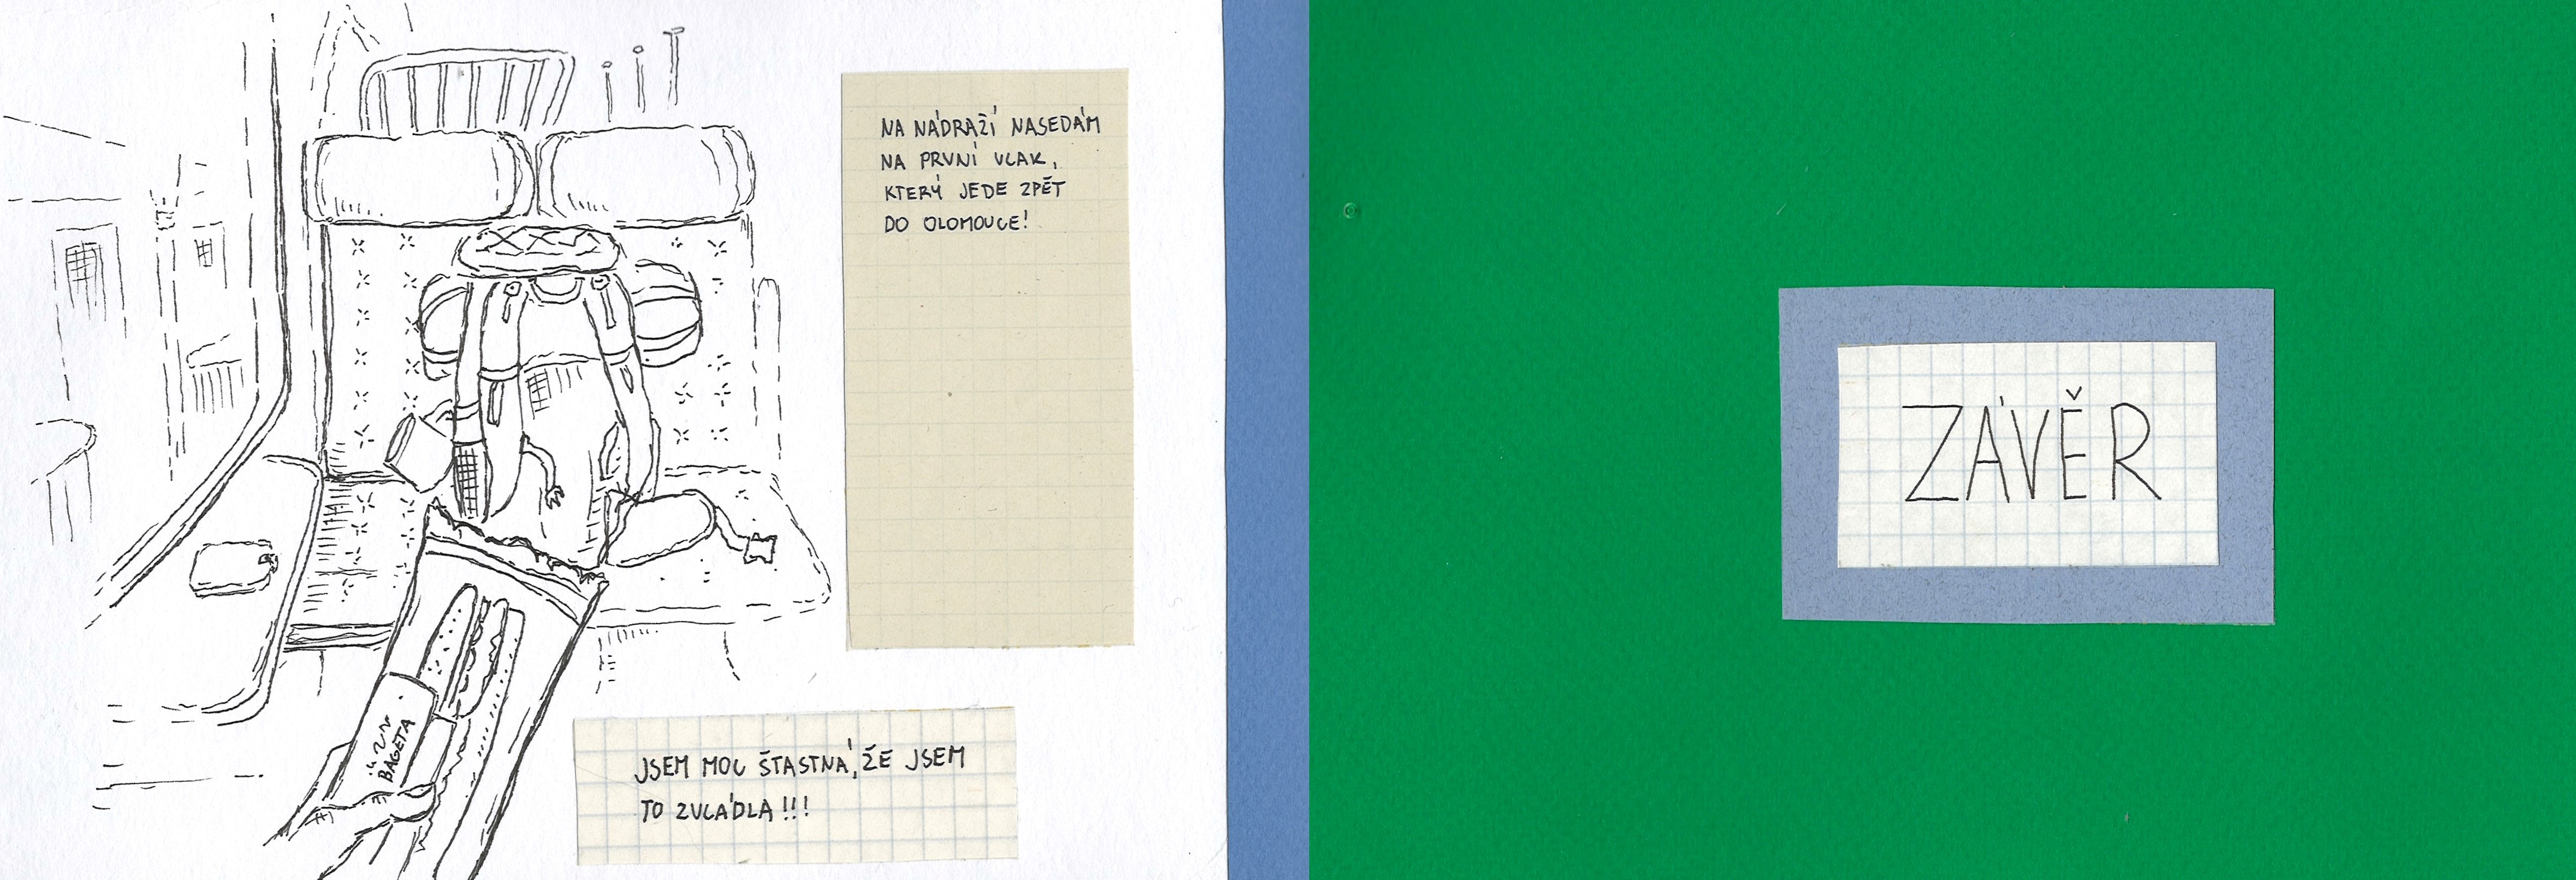 NA NÁDRAŽÍ NASEDÁM
NA PRVNÍ VLAK,
KTERÝ JEDE ZPĚT
DO OLOMOUCE!
BAGETA
JSEM MOC ŠTASTNÁ, ŽE JSEM
TO ZVLÁDLA!!!
ZÁVĚR